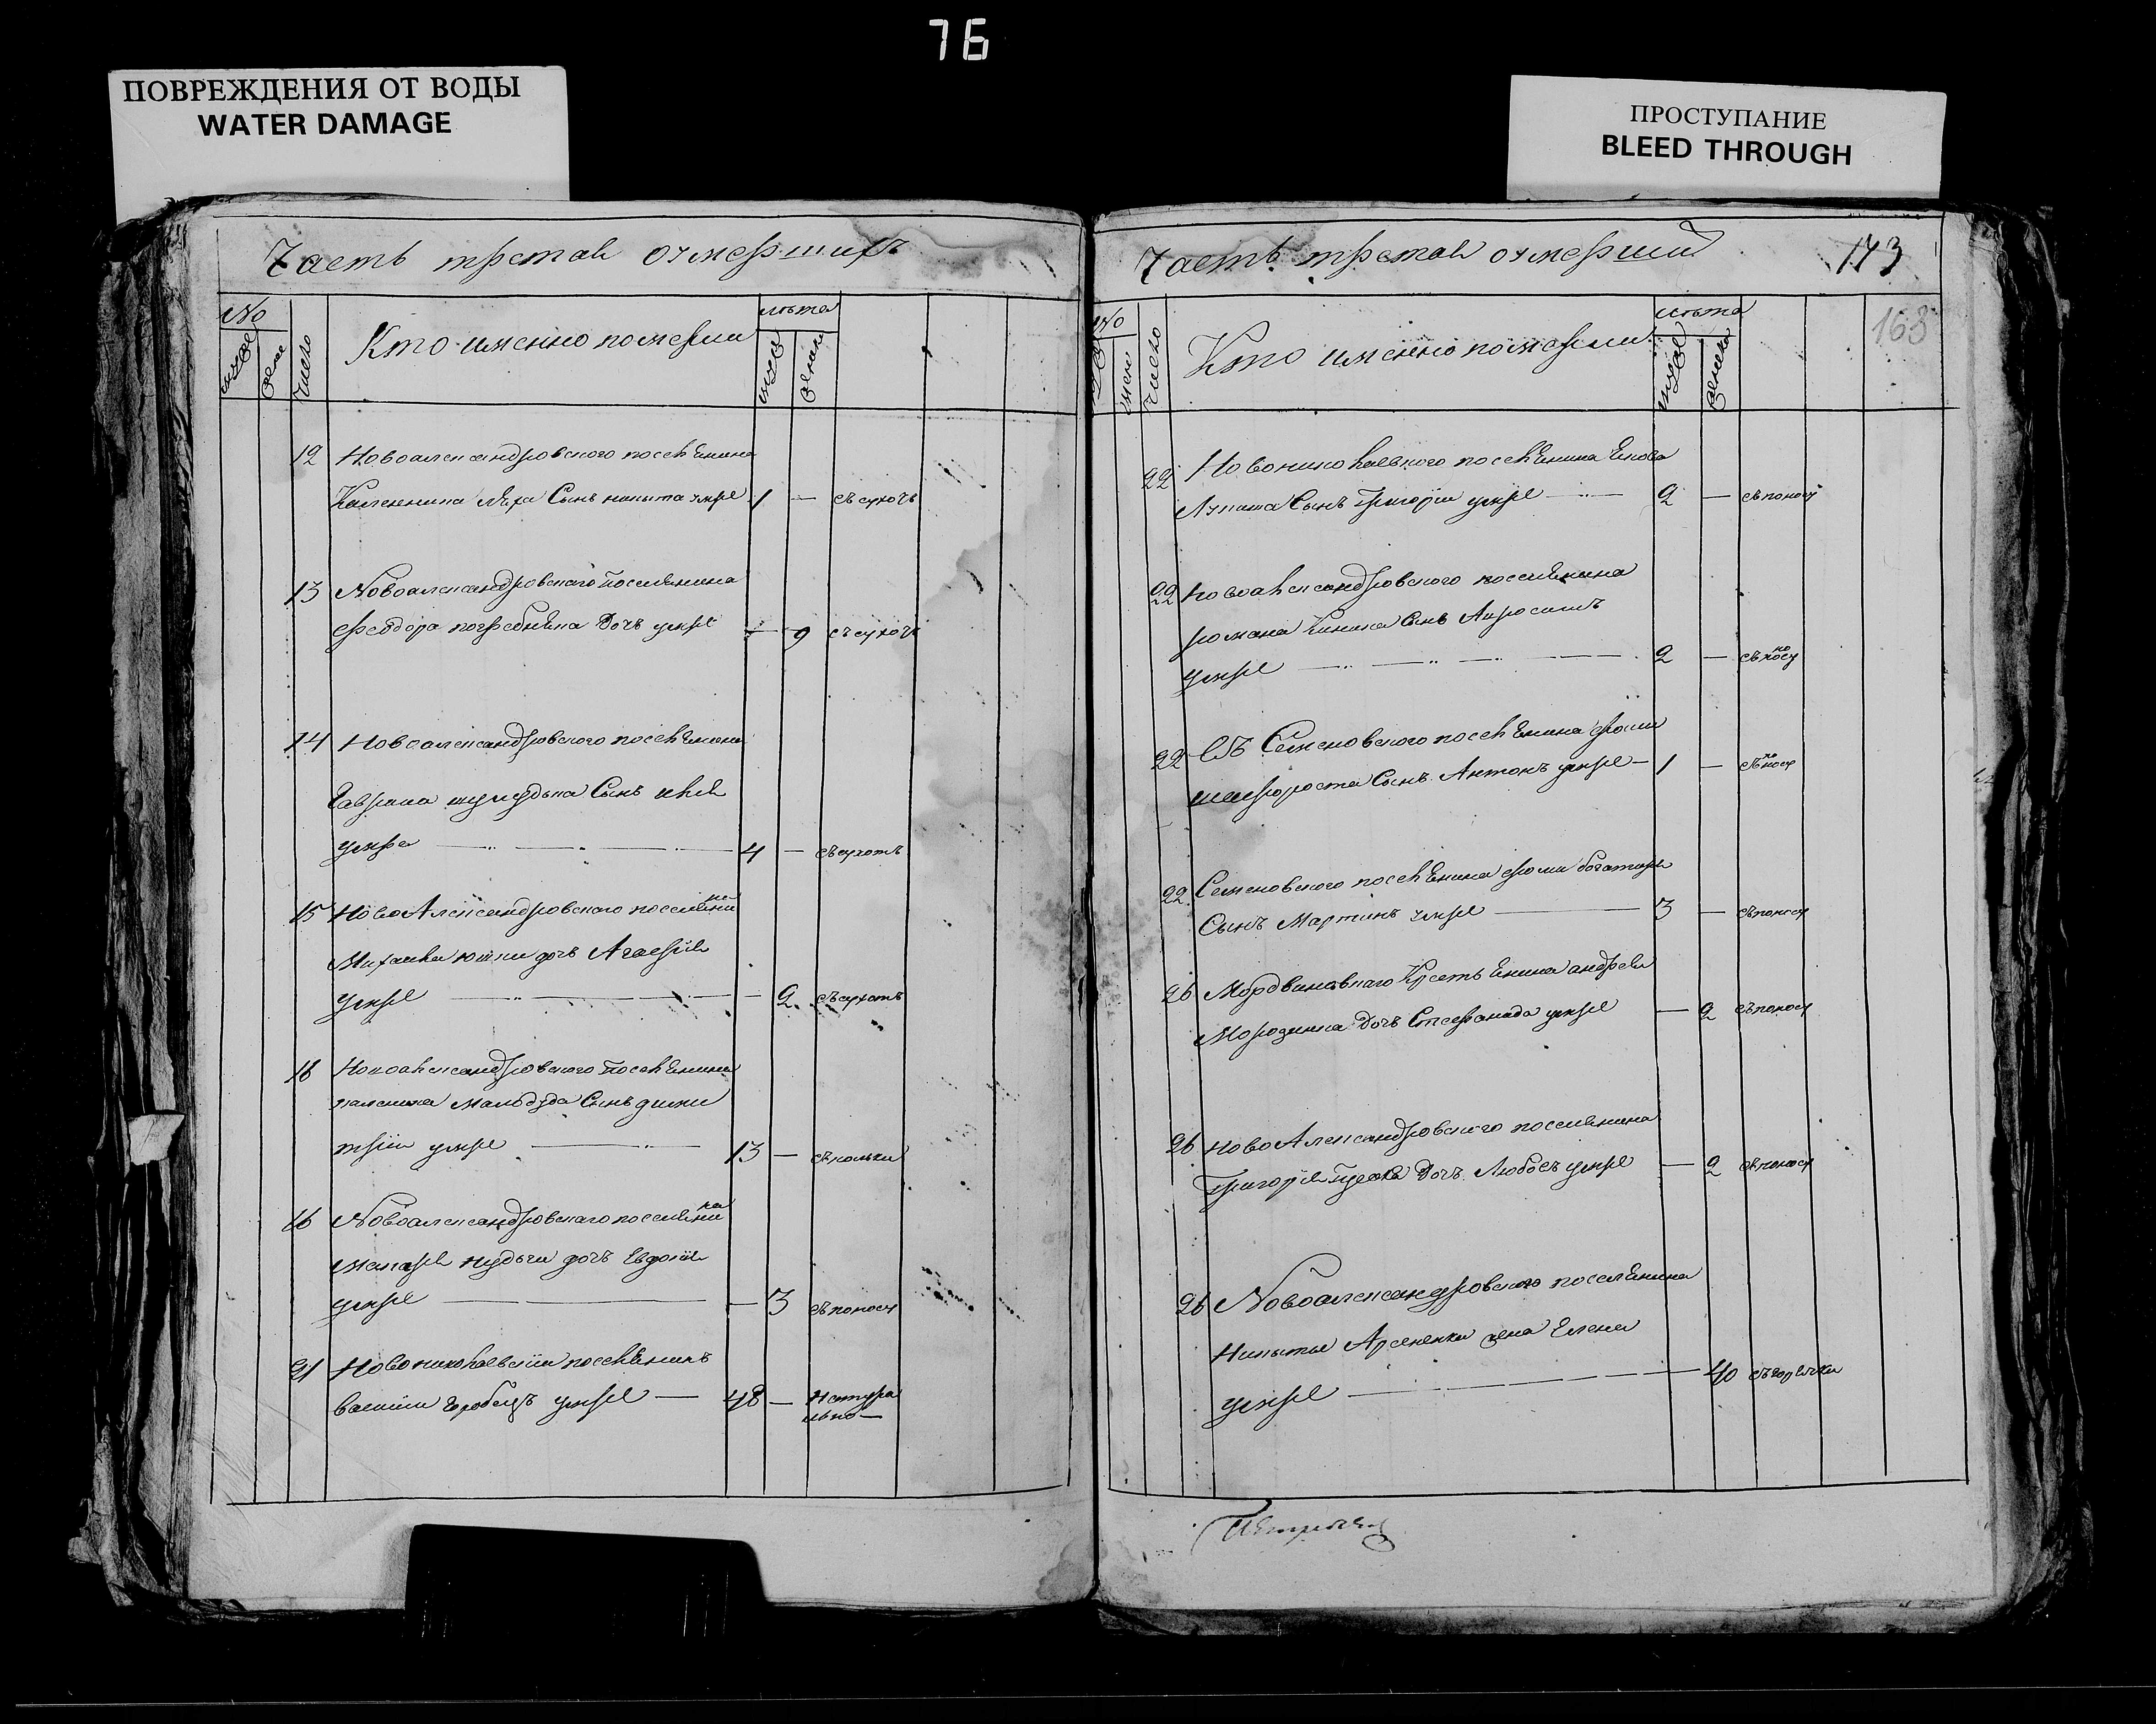 76
ПОВРЕЖДЕНИЯ ОТ ВОДЫ
WATER DAMAGE
ПРОСТУПАНИЕ
BLEED THROUGH
Часть третая о умерших
No
число
Кто именно померли
лѣта
12 Новоалександровского поселенина
Сынъ никита умре 1 — съ сухотъ
13 Новоалександровского поселенина
Феодора погребнѣка Дочъ умре — 9 съ сухотъ
14 Новоалександровского поселенина
Гаврила Сынъ илея
умре — 4 — съ сухотъ
15 Ново Александровского поселенина
Михаила дочъ Агафия
умре — 2 съ сухотъ
16 Новоалександровского поселенина
Сынъ дими
трии умре — 13 — съ кольки
16 Новоалександровского поселенина
макаря нудьги дочъ Евдокия
умре — 3 съ поносу
21 Новониколаевский поселенинъ
василии горобецъ умре — 48 — Натура
льно —
Часть третая о умерших
173
163
No
число
Кто именно померли
лѣта
22 Новониколаевского поселенина Якова
Сынъ Григорїи умре — 2 — съ поносу
22 новоалександровского поселенина
романа Сынъ
умре — 2 — съ поносу
22 Семеновского поселенина фоми
Сынъ Антонъ умре — 1 — съ поносу
22 Семеновского поселенина фоми богатиря
Сынъ Мартинъ умре — 3 — съ поносу
26 Мордвиновкаго Крестьенина андрея
Дочъ Стефанида умре — 2 съ поносу
26 ново Александровского поселенина
Григория Дочъ Любовъ умре — 2 съ поносу
26 Новоалександровского поселенина
Никыты Арсененка жена Елена
умре — 40 съ горячки